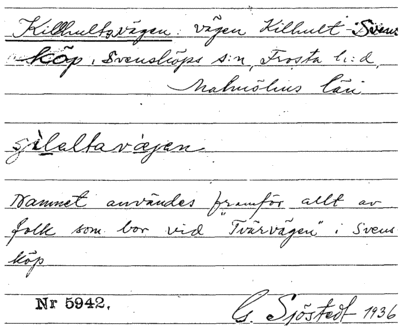 Killhultavägen: vägen Killhult - Svens
köp, Svensköps s:n, Frosta h:d,
Malmöhus län
Namnet användes framför allt av
folk som bor vid "Tvärvägen" i Svens
köp
Nr 5942.
G. Sjöstedt 1936